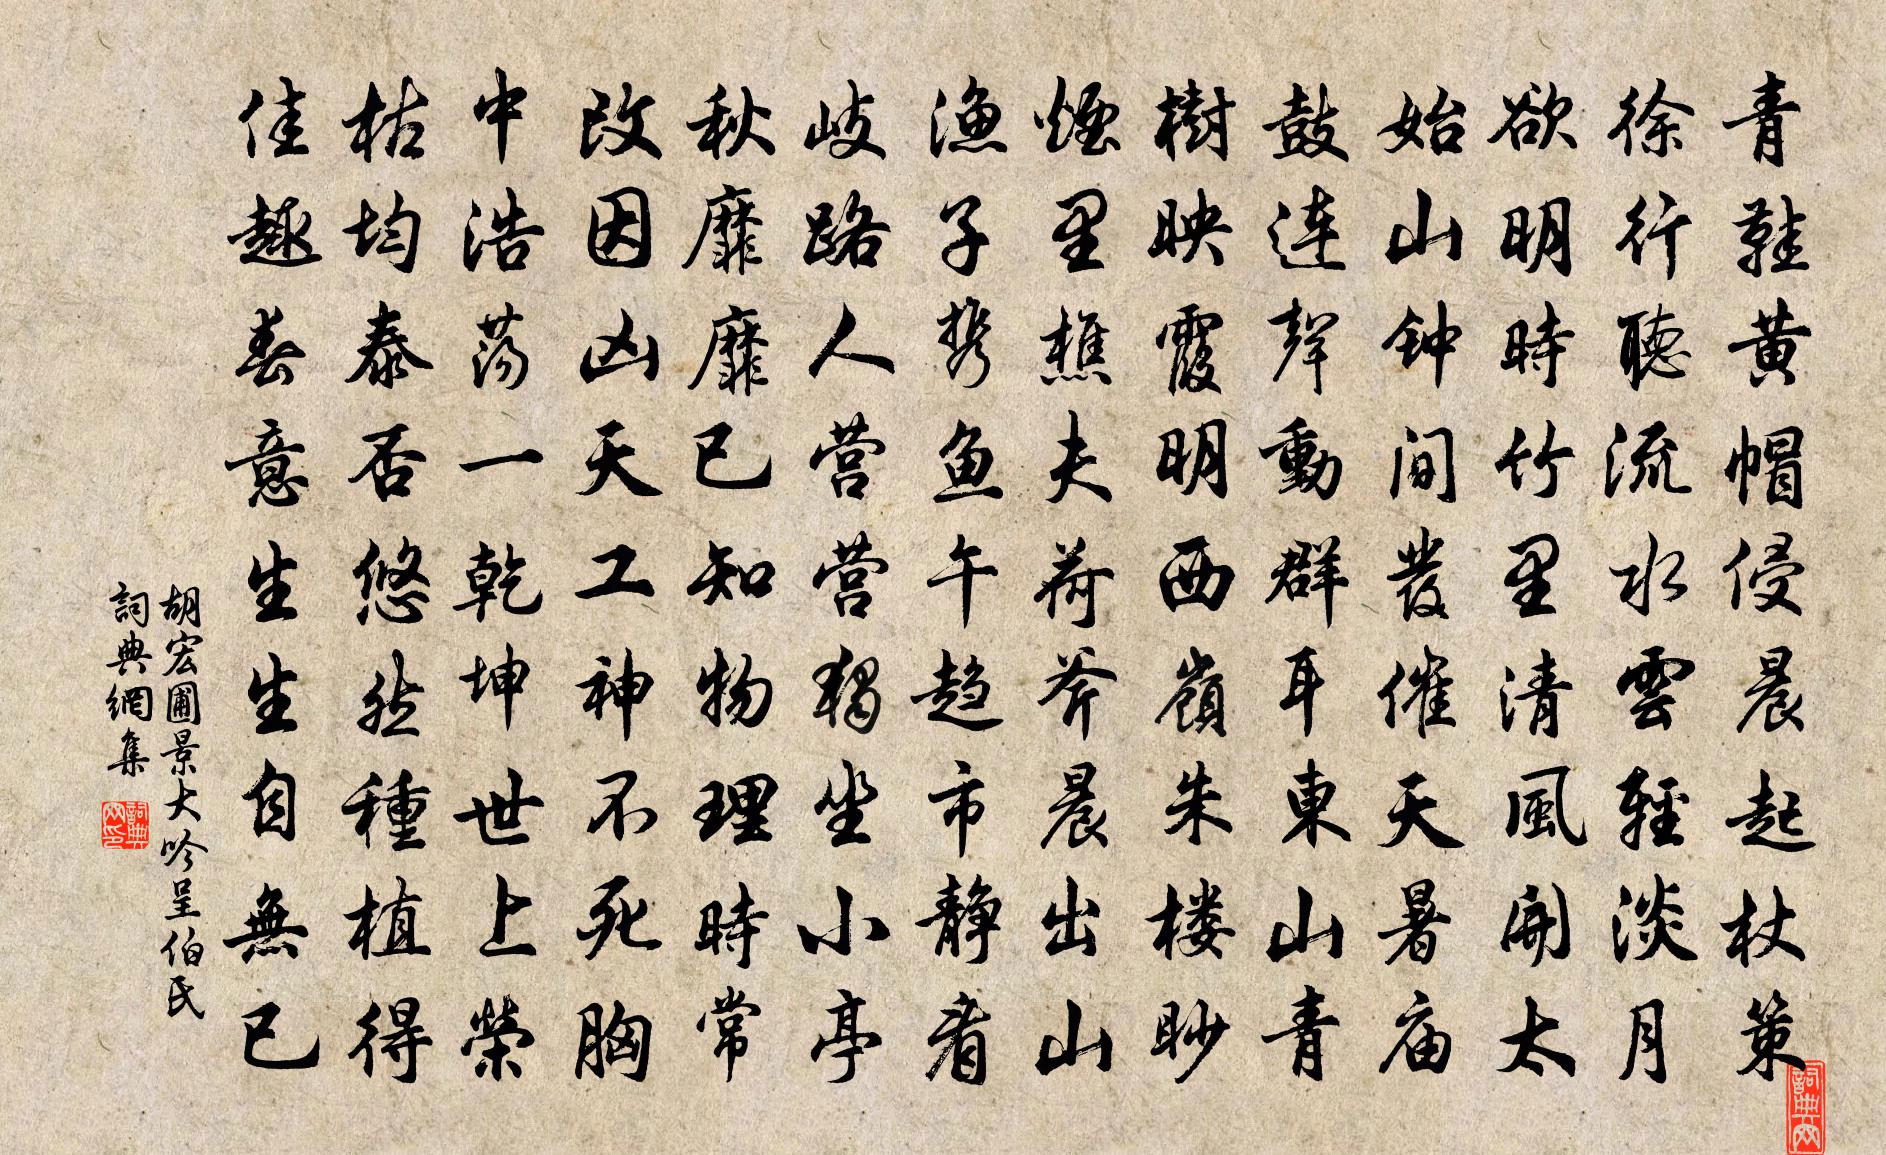 青鞋黄帽侵晨起杖策
徐行聽流水雲輕淡月
欲明時竹里清風開太
始山钟间發催天暑庙
鼓连聲動群耳東山青
樹映霞明西嶺朱楼眇
煙里樵夫荷斧晨出山
渔子携鱼午趋市静看
岐路人营营独坐小亭
秋靡靡已知物理時常
改因凶天工神不死胸
中浩荡一乾坤世上榮
枯均泰否悠然種植得
佳趣春意生生自無已
胡宏圃景大吟呈伯氏
詞典網集
詞典网印
詞典网